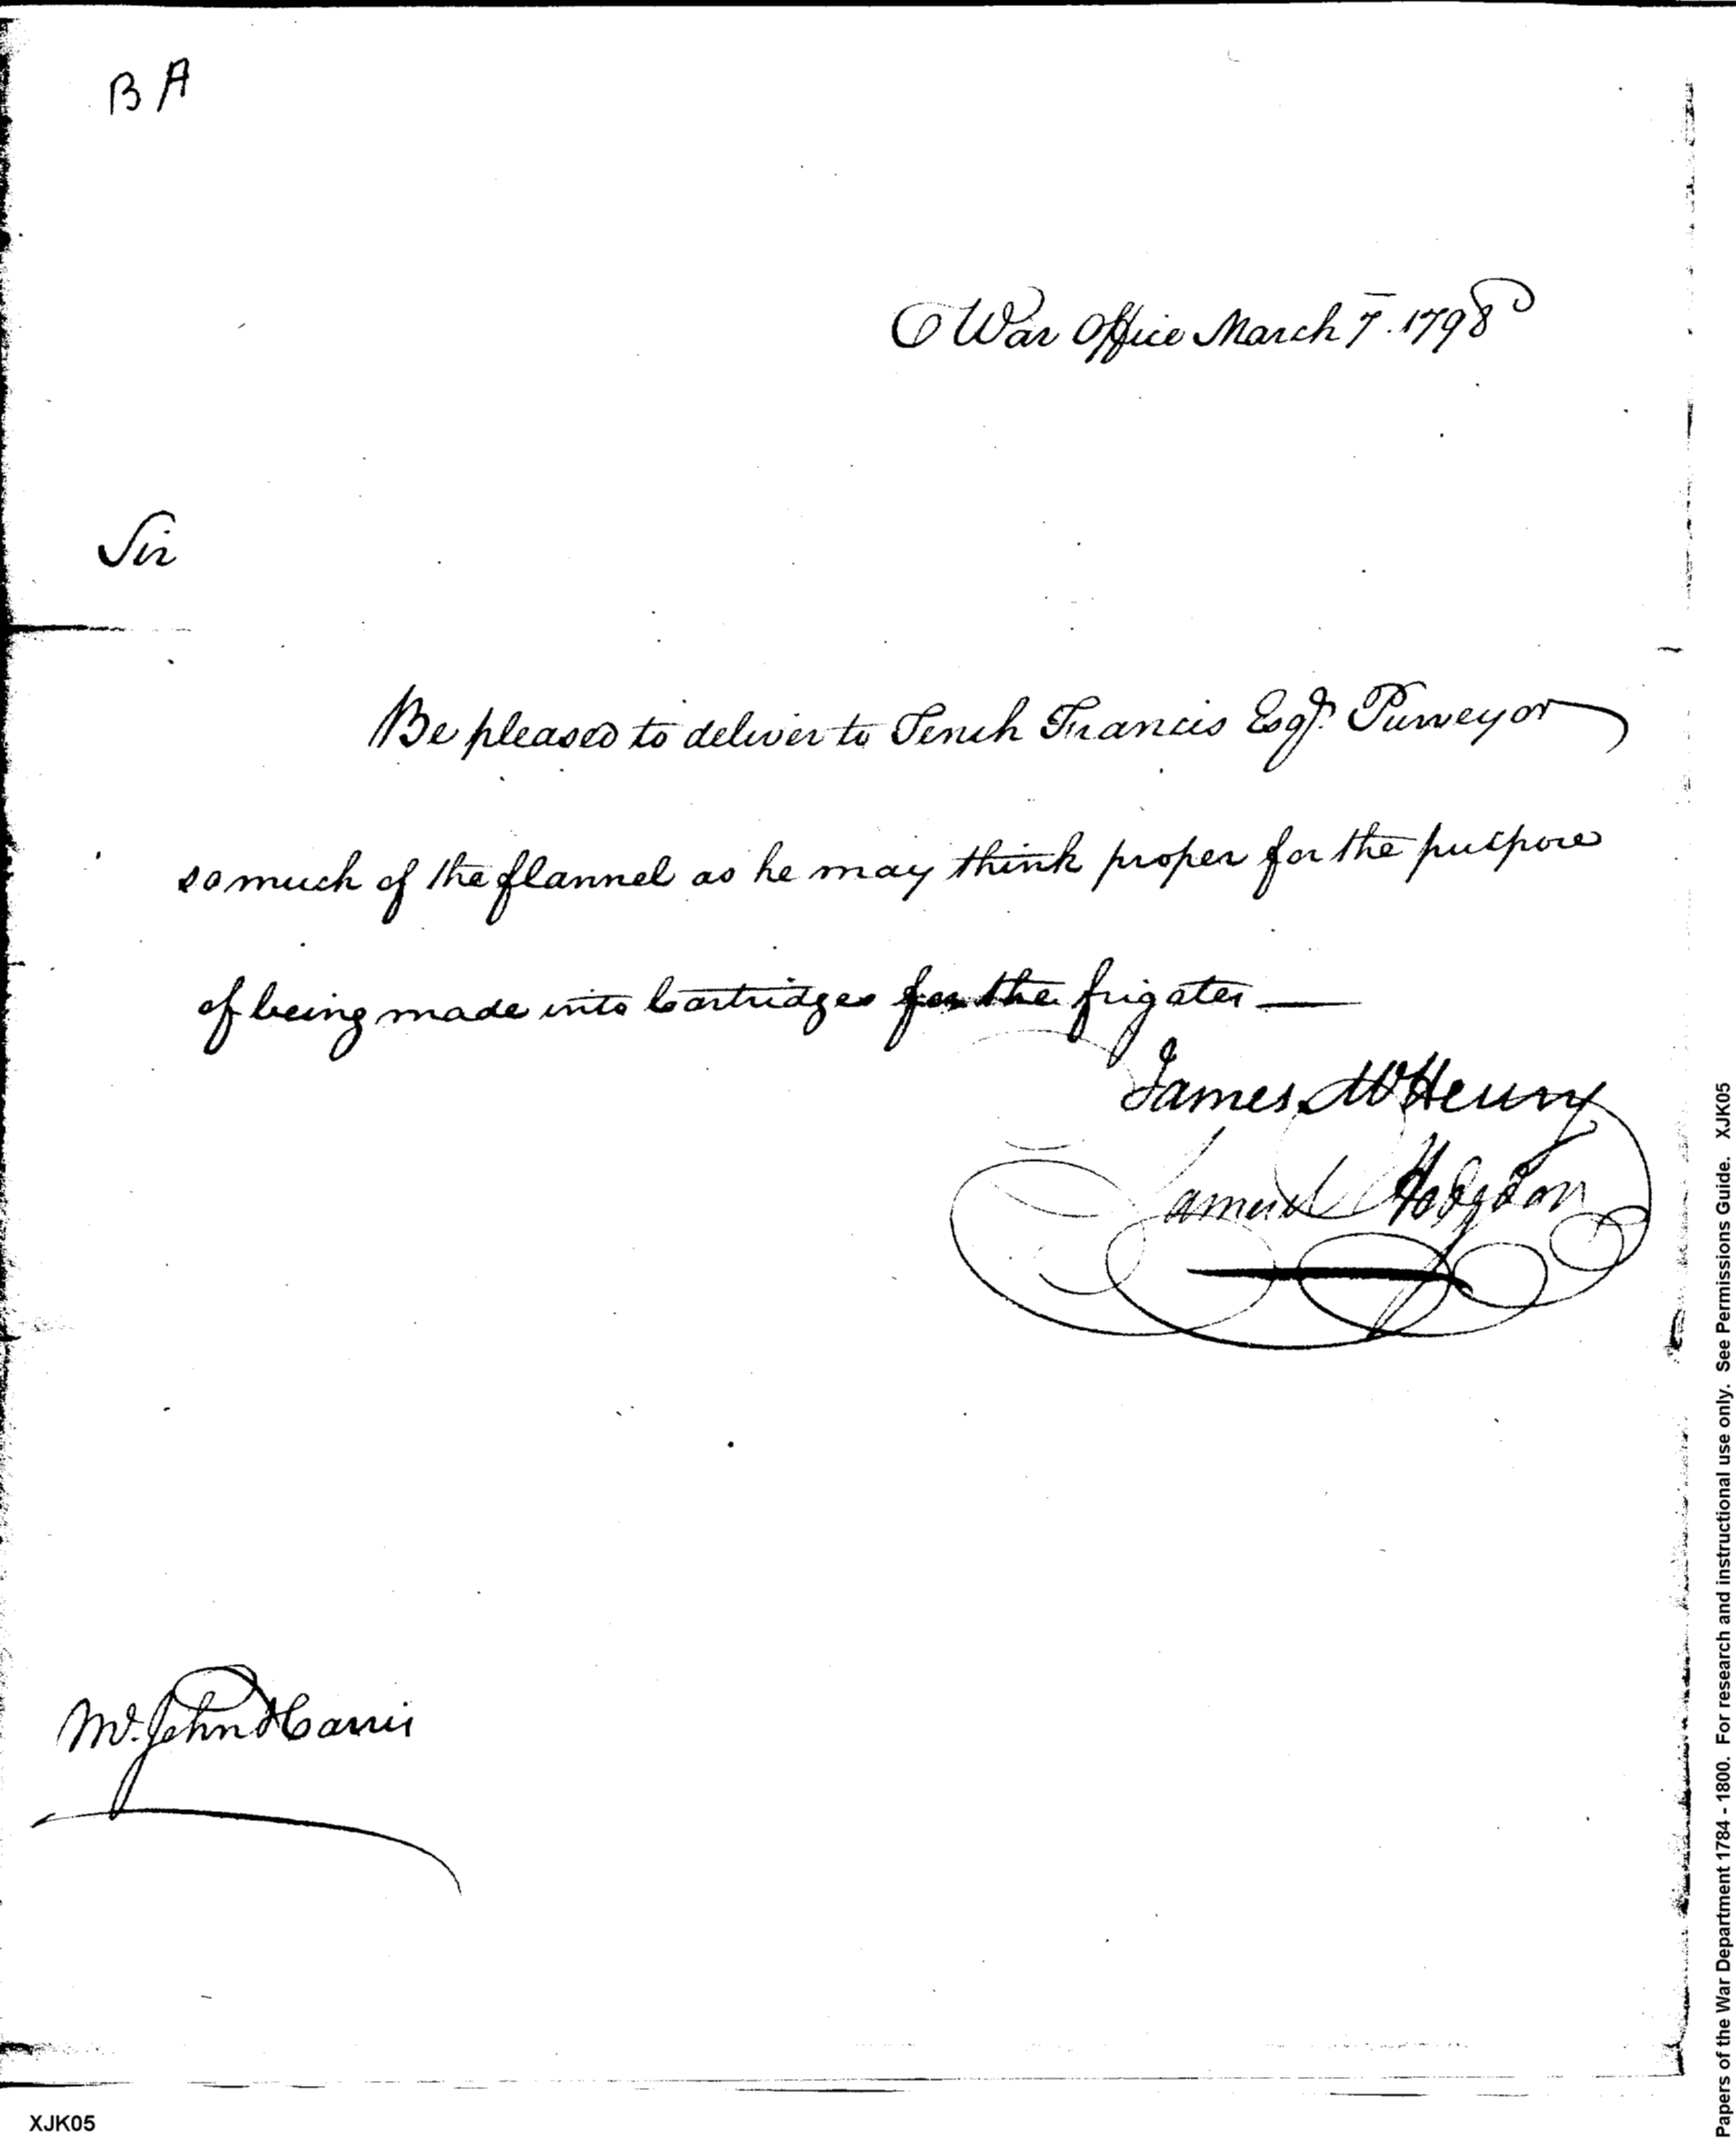 B A
War Office March 7. 1798
Sir
Be pleased to deliver to Tench Francis Esqr. Purveyor
so much of the flannel as he may think proper for the purpose
of being made into Cartridges for the frigates —
James McHenry
Samuel Hodgdon
Mr. John Harris
XJK05
Papers of the War Department 1784 - 1800. For research and instructional use only. See Permissions Guide. XJK05